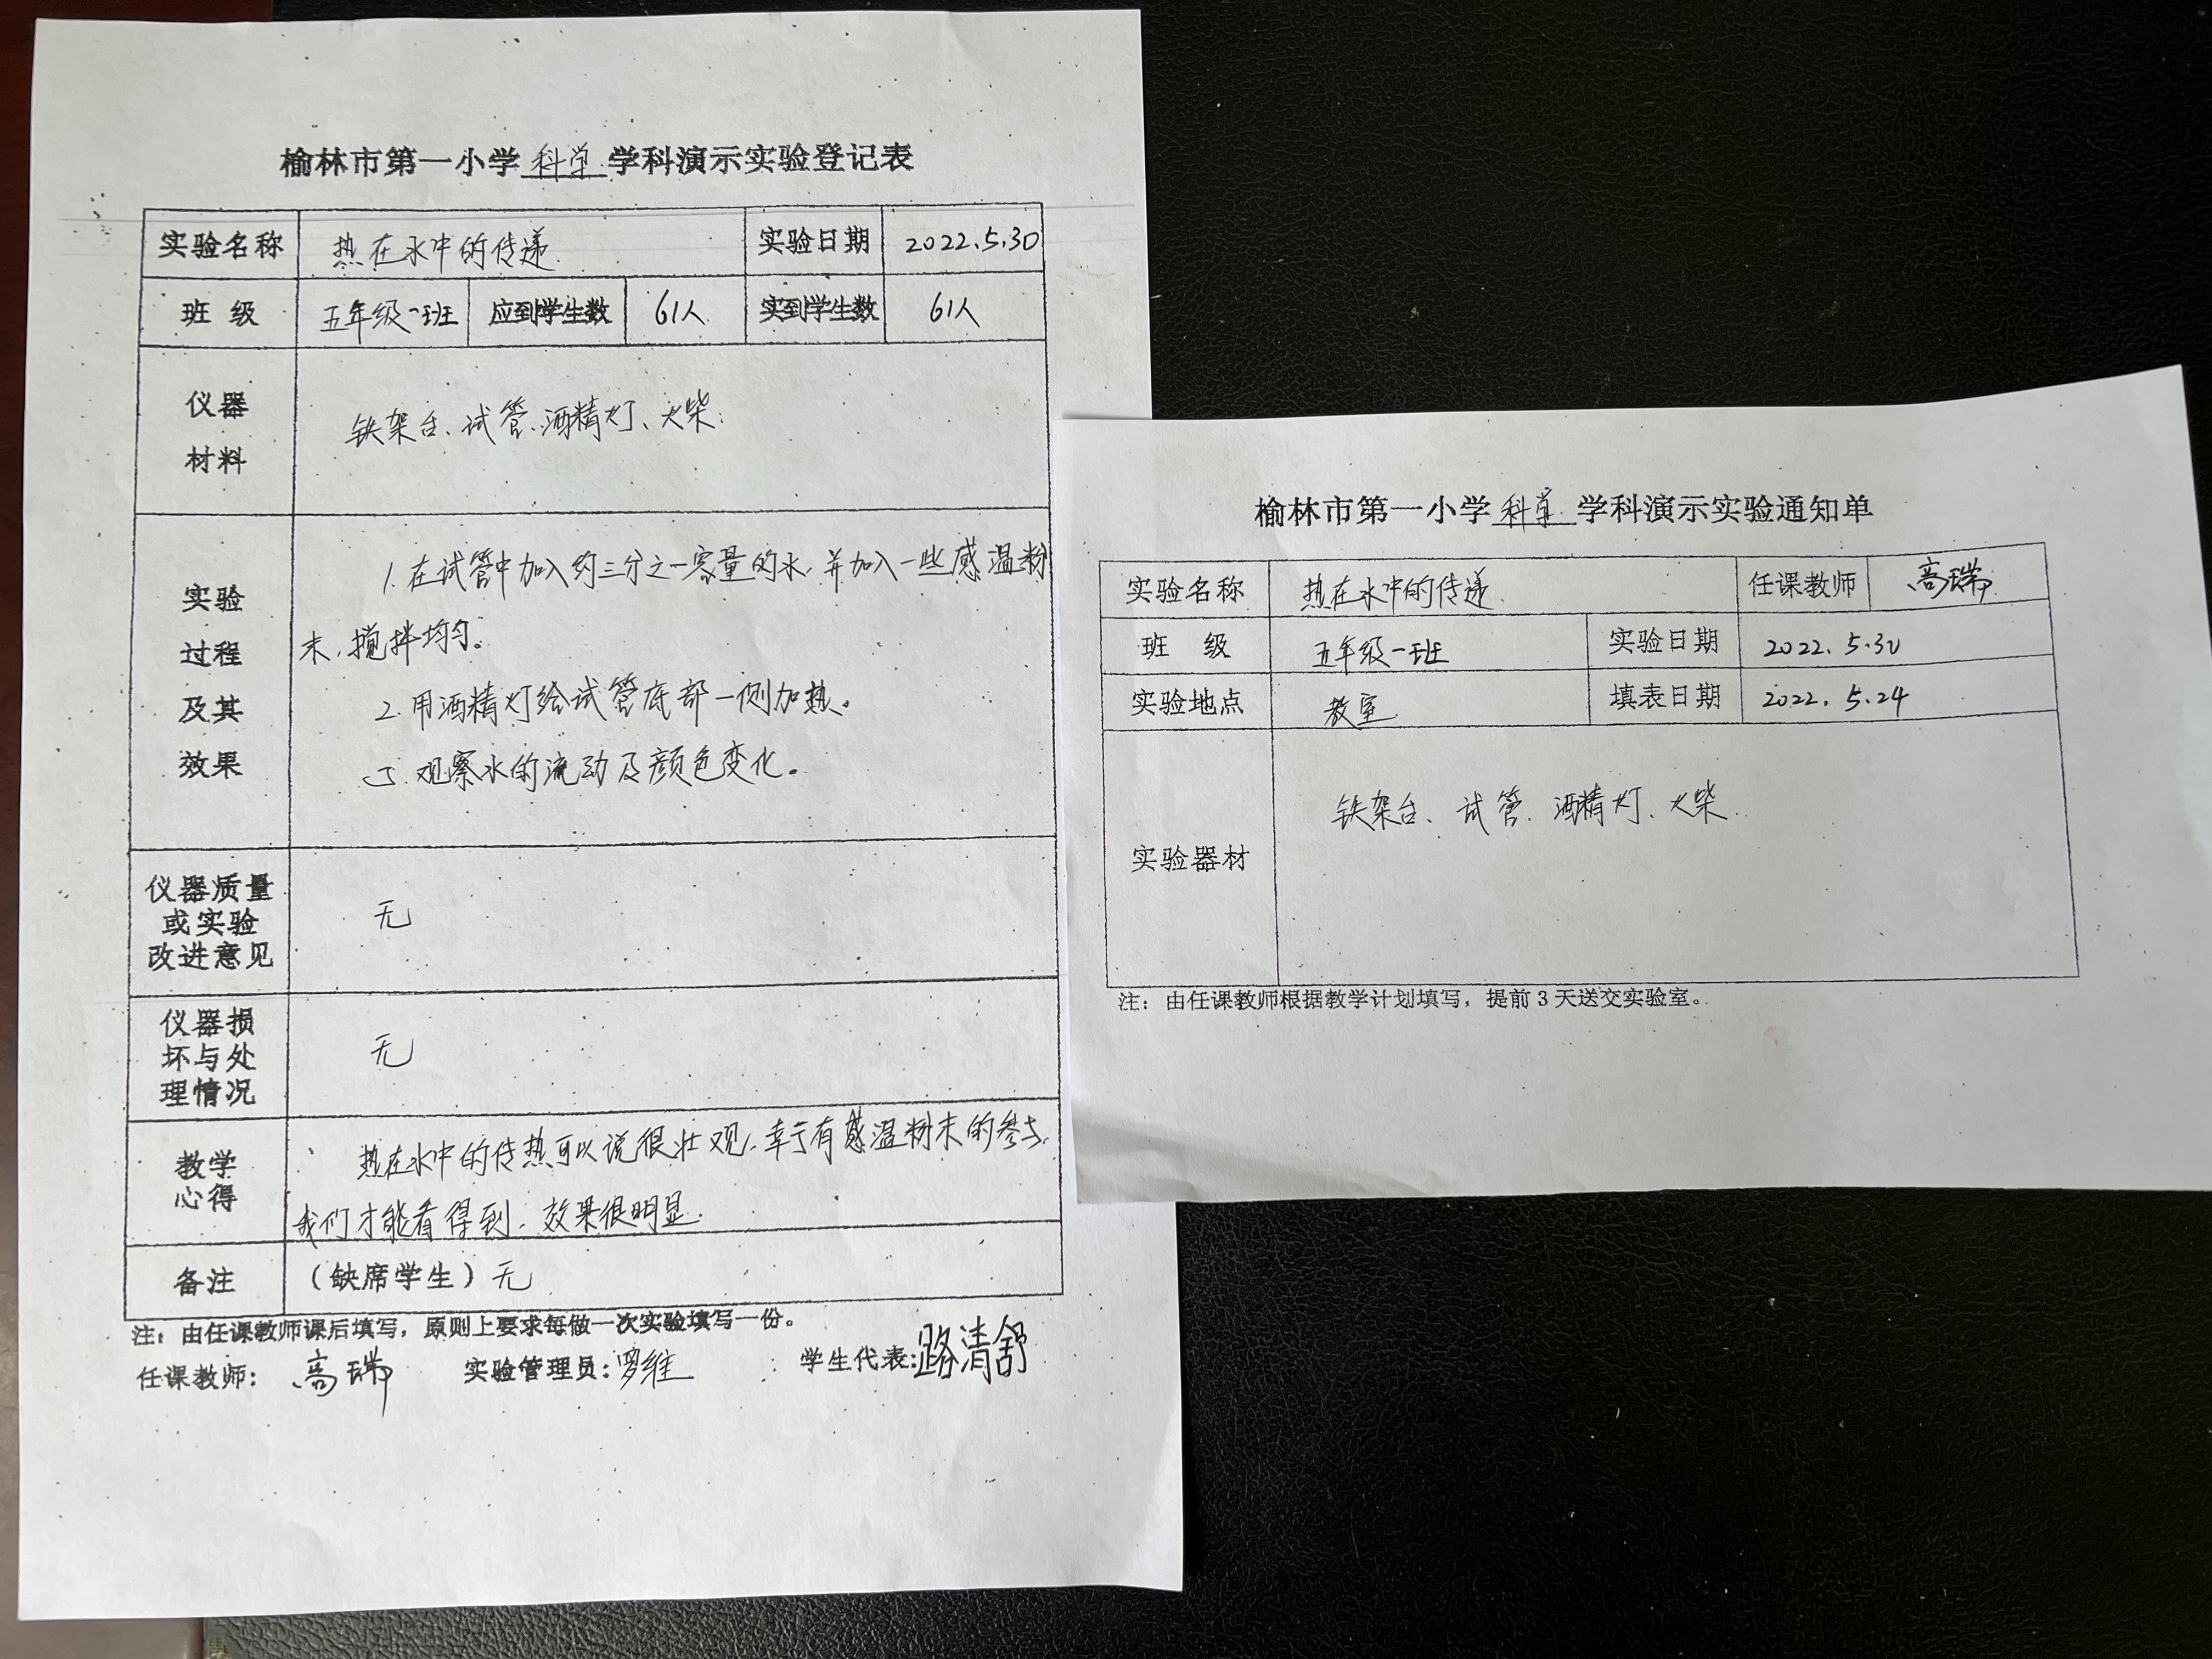 榆林市第一小学科学学科演示实验登记表
实验名称 热在水中的传递 实验日期 2022.5.30
班 级 五年级一班 应到学生数 61人 实到学生数 61人
仪器
材料
铁架台、试管、酒精灯、火柴.
实验
过程
及其
效果
1.在试管中加入约三分之一容量的水,并加入一些感温粉
末,搅拌均匀。
2.用酒精灯给试管底部一侧加热。
3.观察水的流动及颜色变化。
仪器质量
或实验
改进意见
无
仪器损
坏与处
理情况
无
教学
心得
热在水中的传热可以说很壮观,幸亏有感温粉末的参与,
我们才能看得到,效果很明显.
备注 (缺席学生)无
注:由任课教师课后填写,原则上要求每做一次实验填写一份。
任课教师: 高瑞 实验管理员:罗维 学生代表:路清舒
榆林市第一小学科学学科演示实验通知单
实验名称 热在水中的传递 任课教师 高瑞
班 级 五年级一班 实验日期 2022.5.30
实验地点 教室 填表日期 2022.5.24
实验器材 铁架台、试管、酒精灯、火柴.
注:由任课教师根据教学计划填写,提前3天送交实验室。